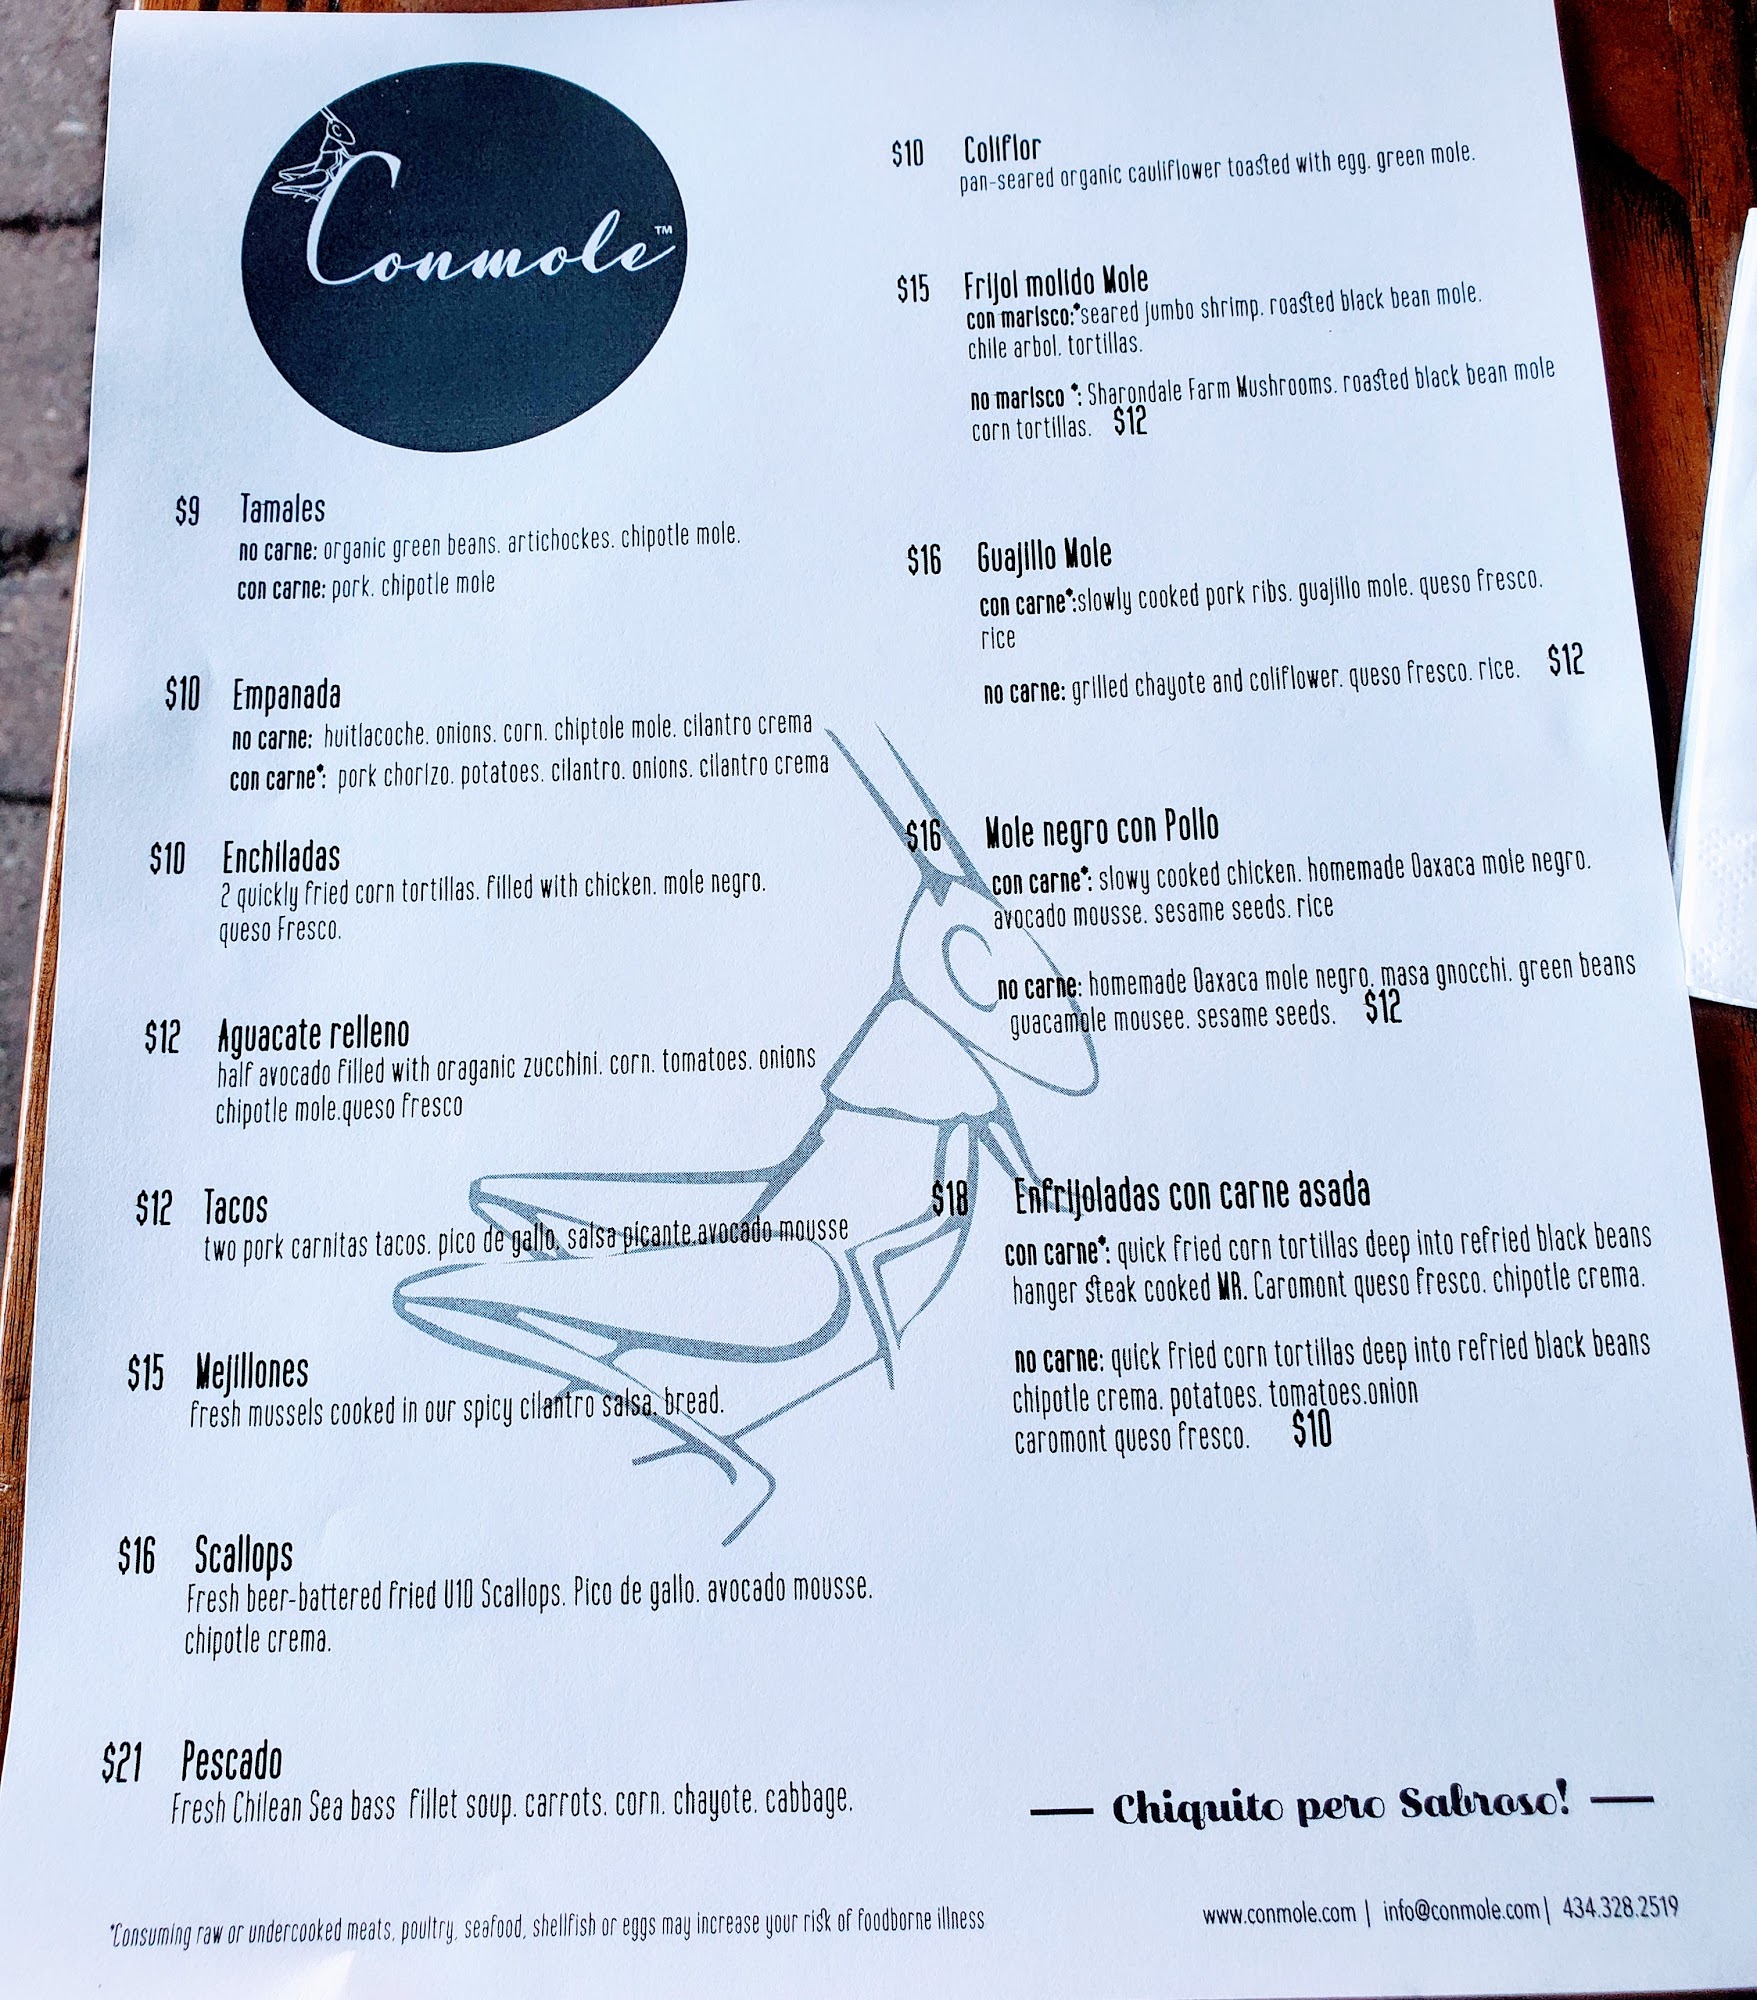 Conmole™
$9 Tamales
no carne: organic green beans. artichockes. chipotle mole.
con carne: pork. chipotle mole
$10 Empanada
no carne: huitlacoche. onions. corn. chiptole mole. cilantro crema
con carne*: pork chorizo. potatoes. cilantro. onions. cilantro crema
$10 Enchiladas
2 quickly fried corn tortillas. filled with chicken. mole negro.
queso Fresco.
$12 Aguacate relleno
half avocado filled with oraganic zucchini. corn. tomatoes. onions
chipotle mole.queso fresco
$12 Tacos
two pork carnitas tacos. pico de gallo. salsa picante.avocado mousse
$15 Mejillones
fresh mussels cooked in our spicy cilantro salsa. bread.
$16 Scallops
Fresh beer-battered fried U10 Scallops. Pico de gallo. avocado mousse.
chipotle crema.
$21 Pescado
Fresh Chilean Sea bass fillet soup. carrots. corn. chayote. cabbage.
*Consuming raw or undercooked meats, poultry, seafood, shellfish or eggs may increase your risk of foodborne illness
$10 Coliflor
pan-seared organic cauliflower toasted with egg. green mole.
$15 Frijol molido Mole
con marisco:*seared jumbo shrimp. roasted black bean mole.
chile arbol. tortillas.
no marisco *: Sharondale Farm Mushrooms. roasted black bean mole
corn tortillas. $12
$16 Guajillo Mole
con carne*:slowly cooked pork ribs. guajillo mole. queso fresco.
rice
no carne: grilled chayote and coliflower. queso fresco. rice. $12
$16 Mole negro con Pollo
con carne*: slowy cooked chicken. homemade Oaxaca mole negro.
avocado mousse. sesame seeds. rice
no carne: homemade Oaxaca mole negro. masa gnocchi. green beans
guacamole mousee. sesame seeds. $12
$18 Enfrijoladas con carne asada
con carne*: quick fried corn tortillas deep into refried black beans
hanger steak cooked MR. Caromont queso fresco. chipotle crema.
no carne: quick fried corn tortillas deep into refried black beans
chipotle crema. potatoes. tomatoes.onion
caromont queso fresco. $10
Chiquito pero Sabroso!
www.conmole.com | info@conmole.com | 434.328.2519